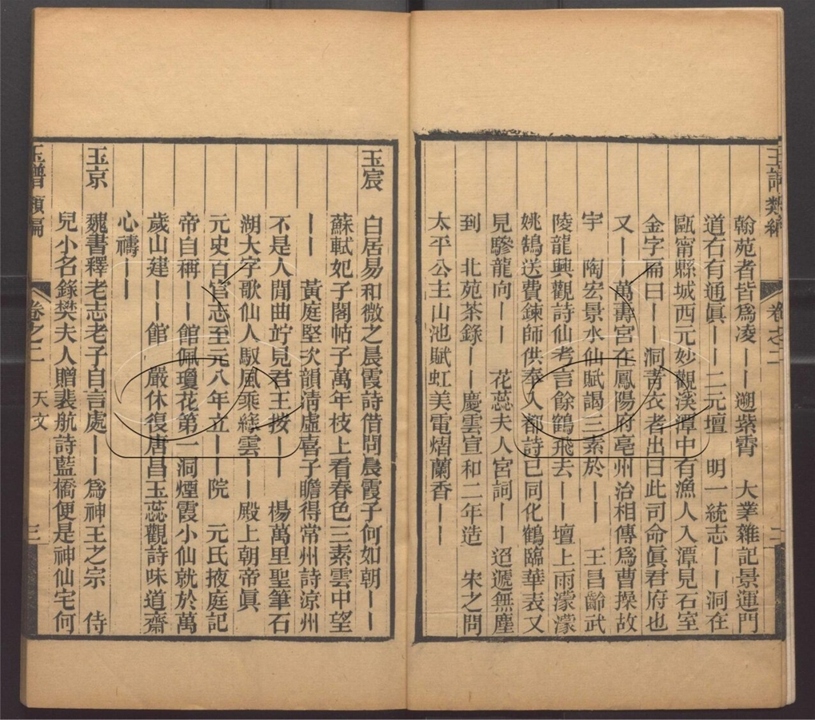 翰苑者皆爲凌——遡紫霄　大業雜記景運門
道右有通眞——二元壇　明一統志——洞在
甌甯縣城西元妙觀溪潭中有漁人入潭見石室
金字扁曰——洞青衣者出曰此司命眞君府也
又——萬壽宮在鳳陽府亳州治相傳爲曹操故
宇　陶宏景水仙賦謁三素於——　王昌齡武
陵龍興觀詩仙考言餘鶴飛去——壇上雨濛濛
姚鵠送費鍊師供奉入都詩已同化鶴臨華表又
見驂龍向——　花蕊夫人宮詞——迢遞無塵
到　北苑茶錄——慶雲宣和二年造　宋之問
太平公主山池賦虹美電熠蘭香——
卷之二
二
玉宸　白居易和微之晨霞詩借問晨霞子何如朝——
蘇軾妃子閣帖子萬年枝上看春色三素雲中望
——　黃庭堅次韻清虛喜子瞻得常州詩涼州
不是人閒曲竚見君王按——　楊萬里聖筆石
湖大字歌仙人馭風乘綵雲——殿上朝帝眞
元史百官志至元八年立——院　元氏掖庭記
帝自稱——館佩瓊花第一洞煙霞小仙就於萬
歲山建——館　嚴休復唐昌玉蕊觀詩味道齋
心禱——
玉京　魏書釋老志老子自言處——爲神王之宗　侍
兒小名錄樊夫人贈裴航詩藍橋便是神仙宅何
卷之二　天文　三